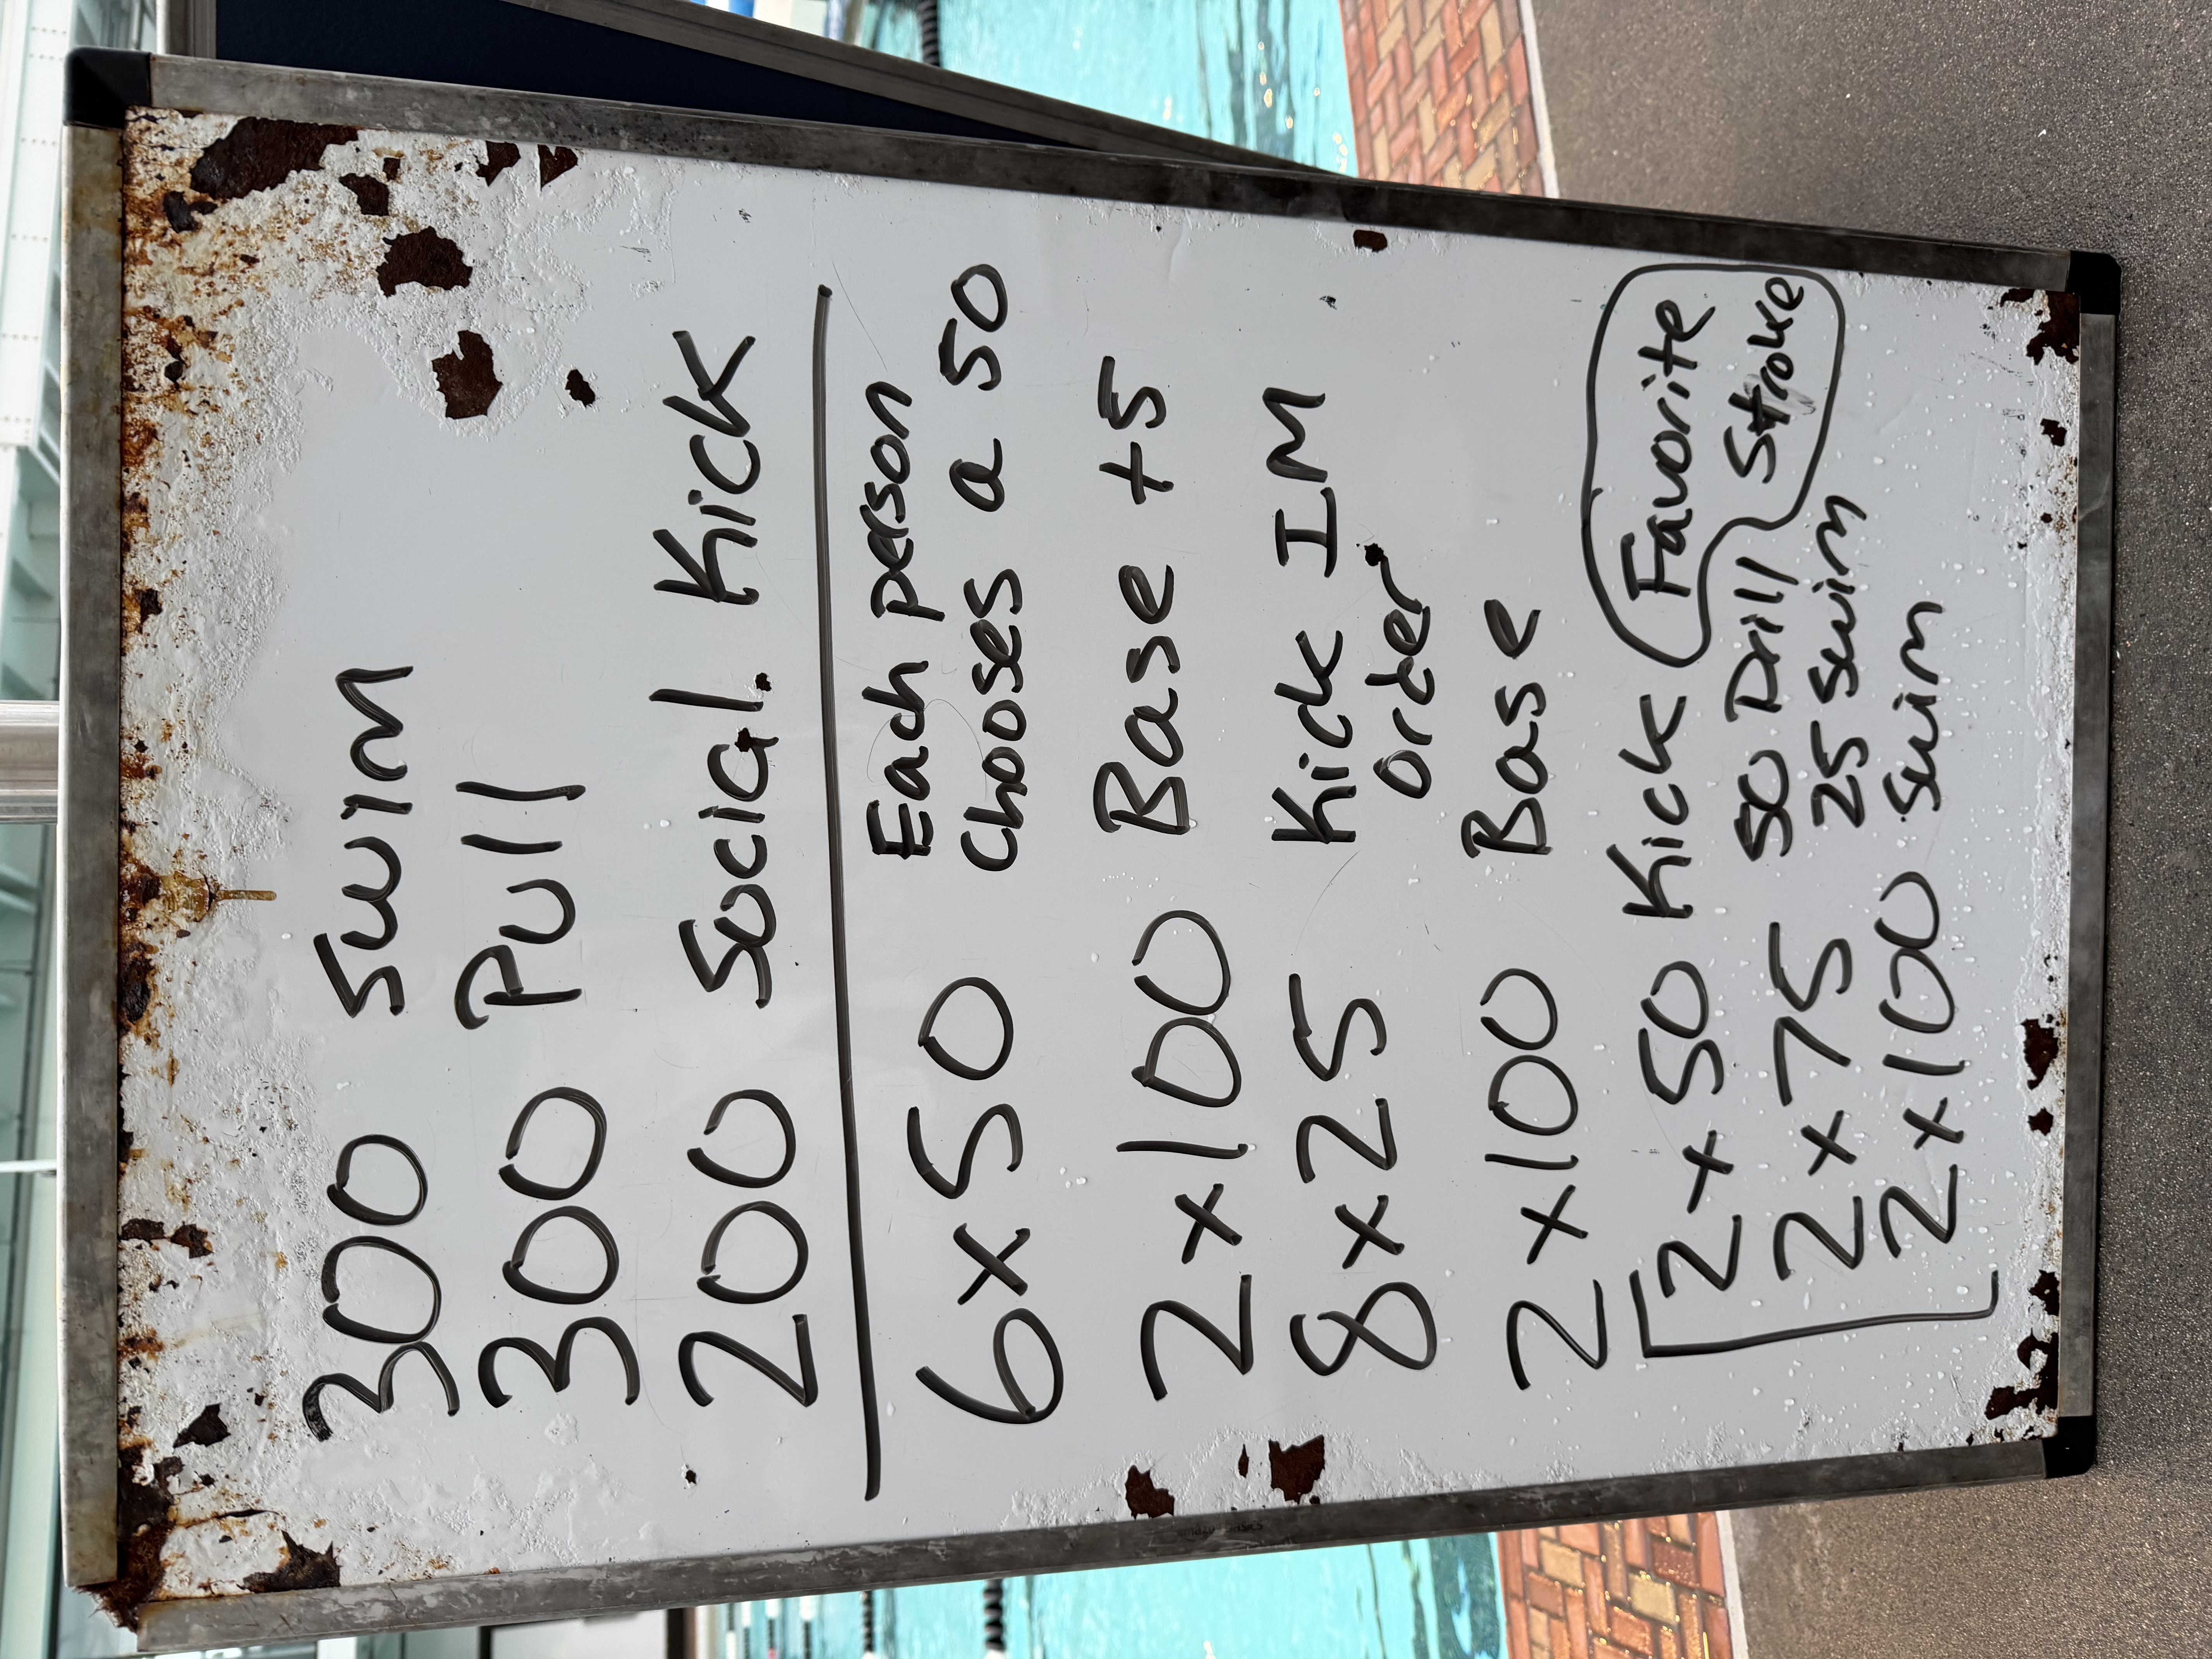 300 Swim
300 Pull
200 Social Kick
6x50 Each person
chooses a 50
2x100 Base +5
8x25 Kick IM
order
2x100 Base
2x50 Kick Favorite
Stroke
2x75 50 Drill
25 Swim
2x100 Swim